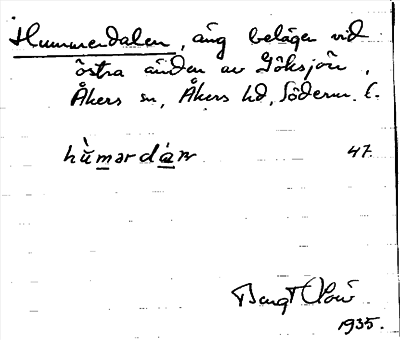 Hummerdalen, äng belägen vid
östra änden av Göksjön,
Åkers sn, Åkers hd, Söderm. l.
hùmərdáɳ 47.
Bengt
1935.